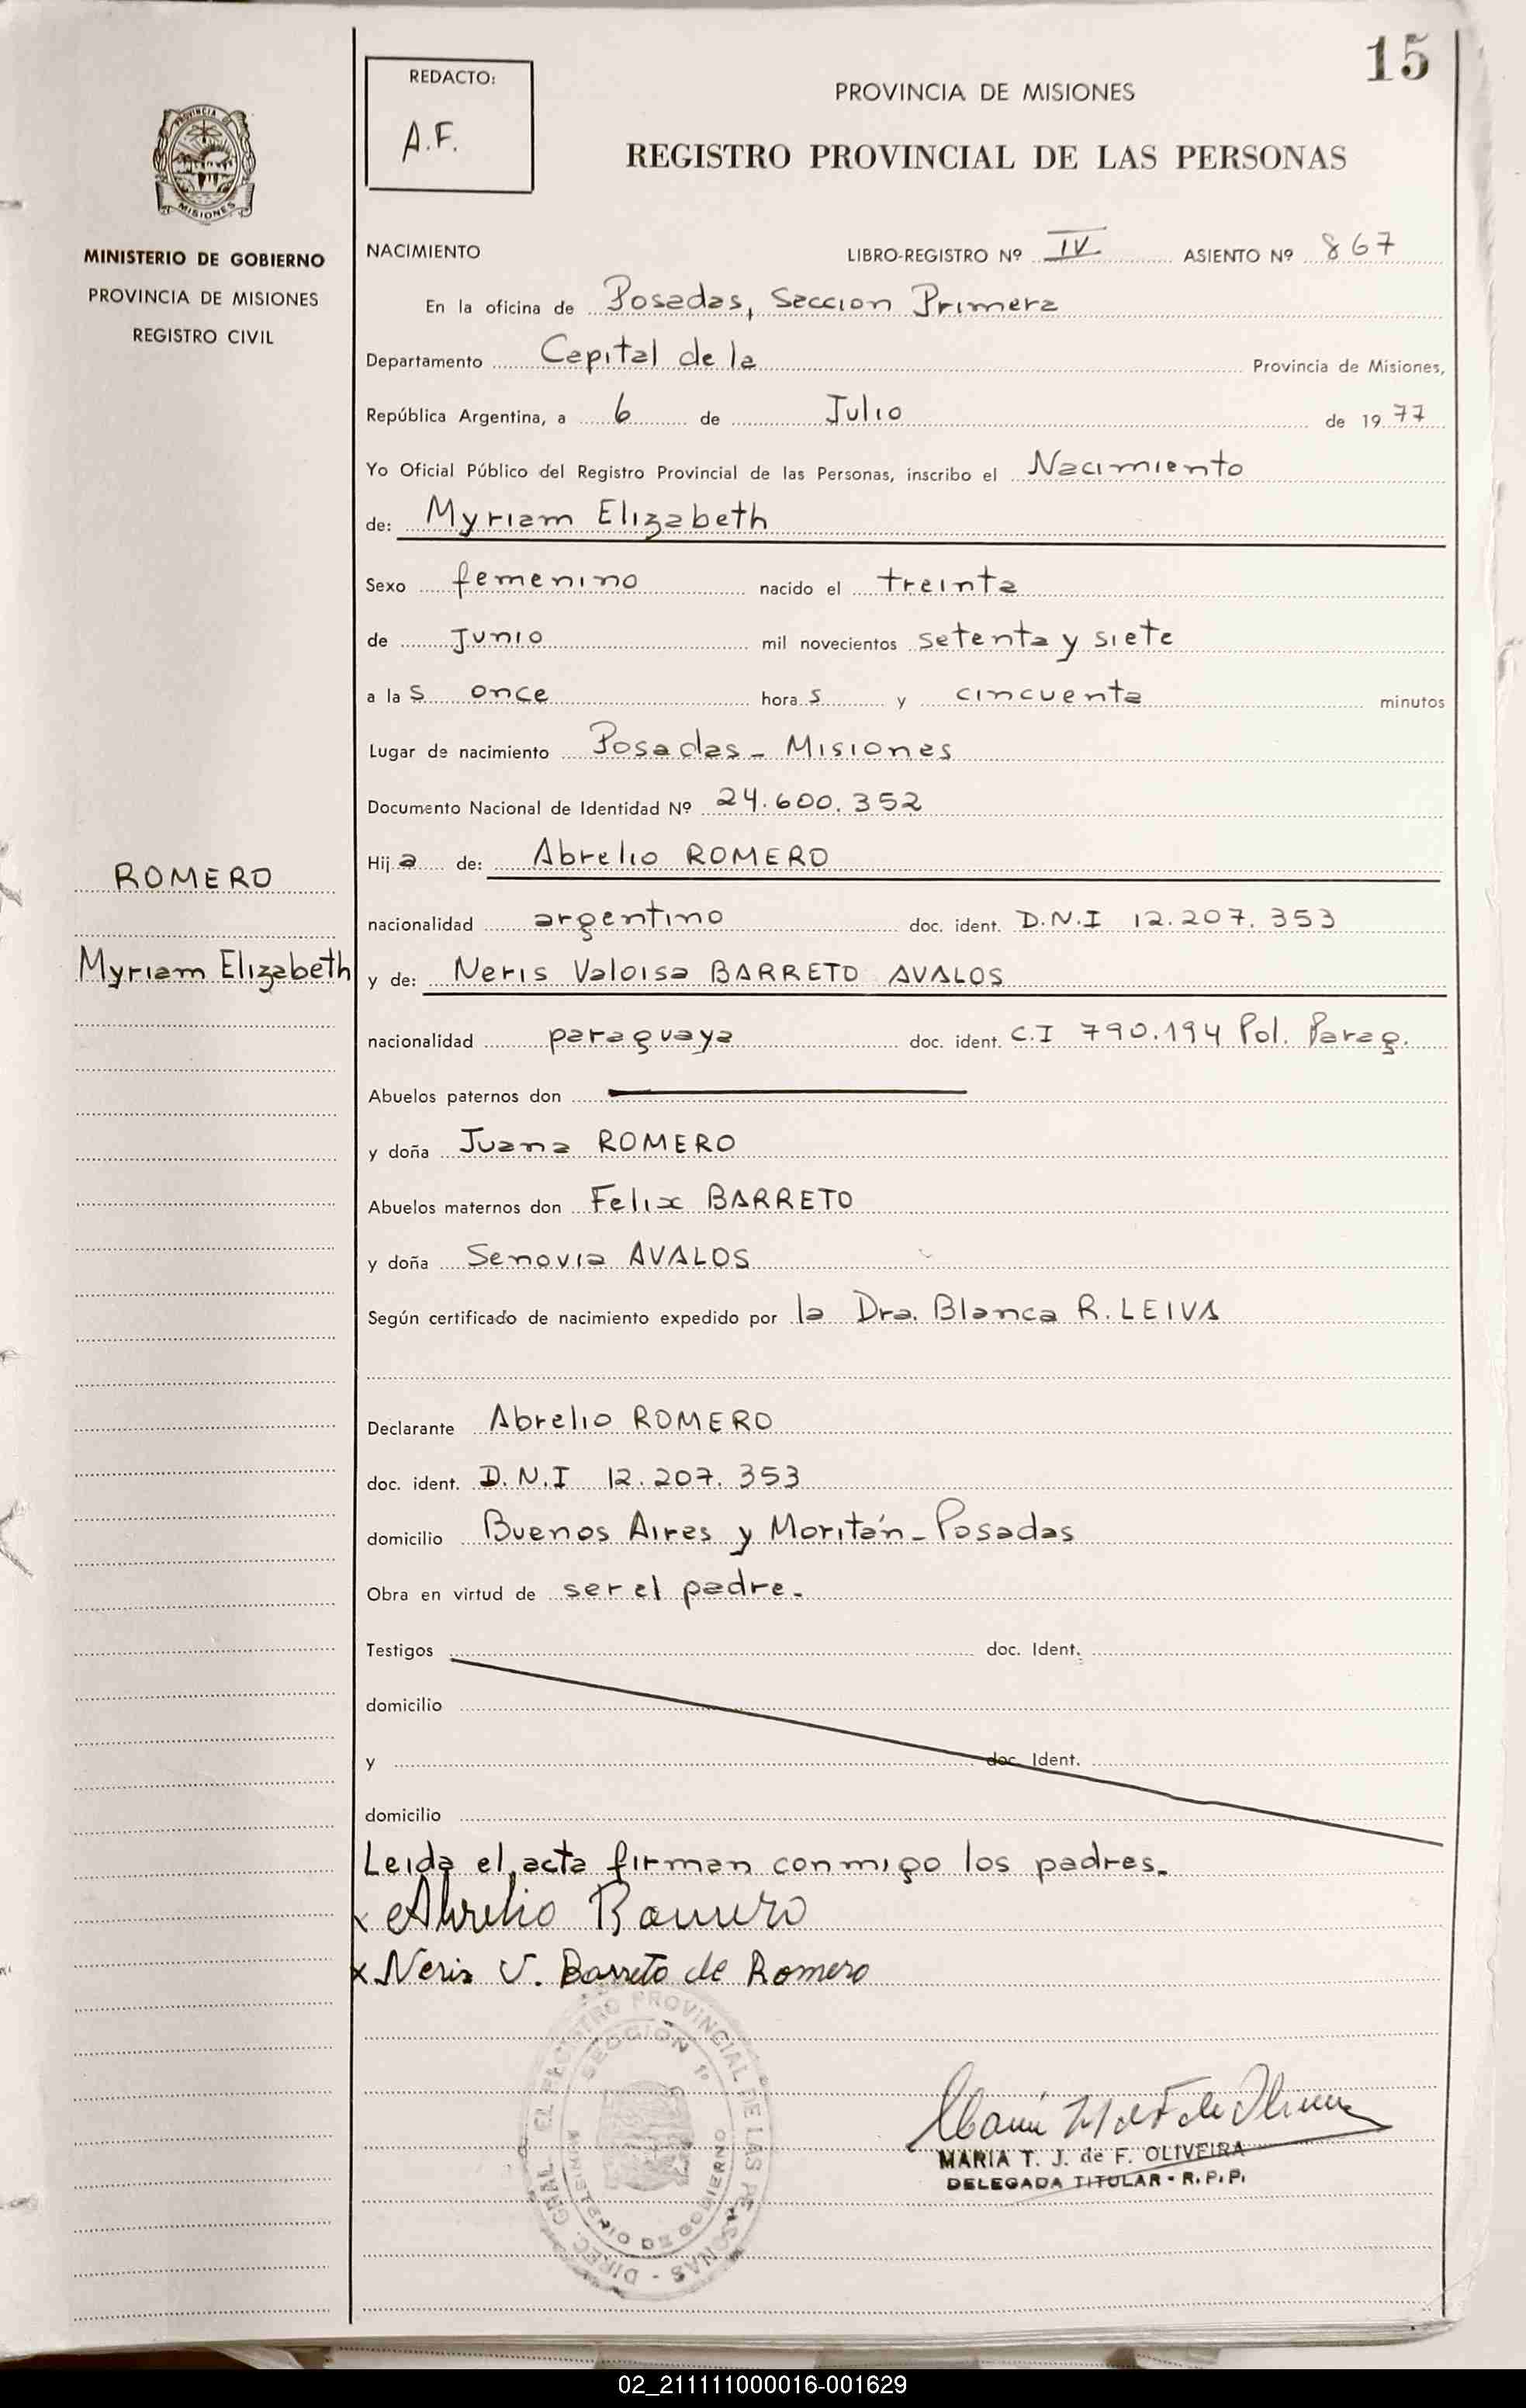 15
REDACTO:
A.F.
PROVINCIA DE MISIONES
REGISTRO PROVINCIAL DE LAS PERSONAS
PROVINCIA DE
MISIONES
MINISTERIO DE GOBIERNO
PROVINCIA DE MISIONES
REGISTRO CIVIL
NACIMIENTO LIBRO-REGISTRO Nº IV ASIENTO Nº 867
En la oficina de Posadas, Seccion Primera
Departamento Capital de la Provincia de Misiones,
República Argentina, a 6 de Julio de 1977
Yo Oficial Público del Registro Provincial de las Personas, inscribo el Nacimiento
de: Myriam Elizabeth
Sexo femenino nacido el treinta
de Junio mil novecientos setenta y siete
a las once horas y cincuenta minutos
Lugar de nacimiento Posadas - Misiones
Documento Nacional de Identidad Nº 24.600.352
Hija de: Abrelio ROMERO
ROMERO
nacionalidad argentino doc. ident. D.N.I 12.207.353
Myriam Elizabeth
y de: Neris Valoisa BARRETO AVALOS
nacionalidad paraguaya doc. ident. C.I 790.194 Pol. Parag.
Abuelos paternos don
y doña Juana ROMERO
Abuelos maternos don Felix BARRETO
y doña Senovia AVALOS
Según certificado de nacimiento expedido por la Dra. Blanca R. LEIVA
Declarante Abrelio ROMERO
doc. ident. D.N.I 12.207.353
domicilio Buenos Aires y Moritán - Posadas
Obra en virtud de ser el padre.
Testigos doc. Ident.
domicilio
y doc. Ident.
domicilio
Leida el acta firman conmigo los padres.
x Abrelio Romero
x Neris V. Barreto de Romero
DIREC. GRAL. EL REGISTRO PROVINCIAL DE LAS PERSONAS -
SECCION 1º
MINISTERIO DE GOBIERNO
MARIA T. J. de F. OLIVEIRA
DELEGADA TITULAR - R.P.P.
02_211111000016-001629